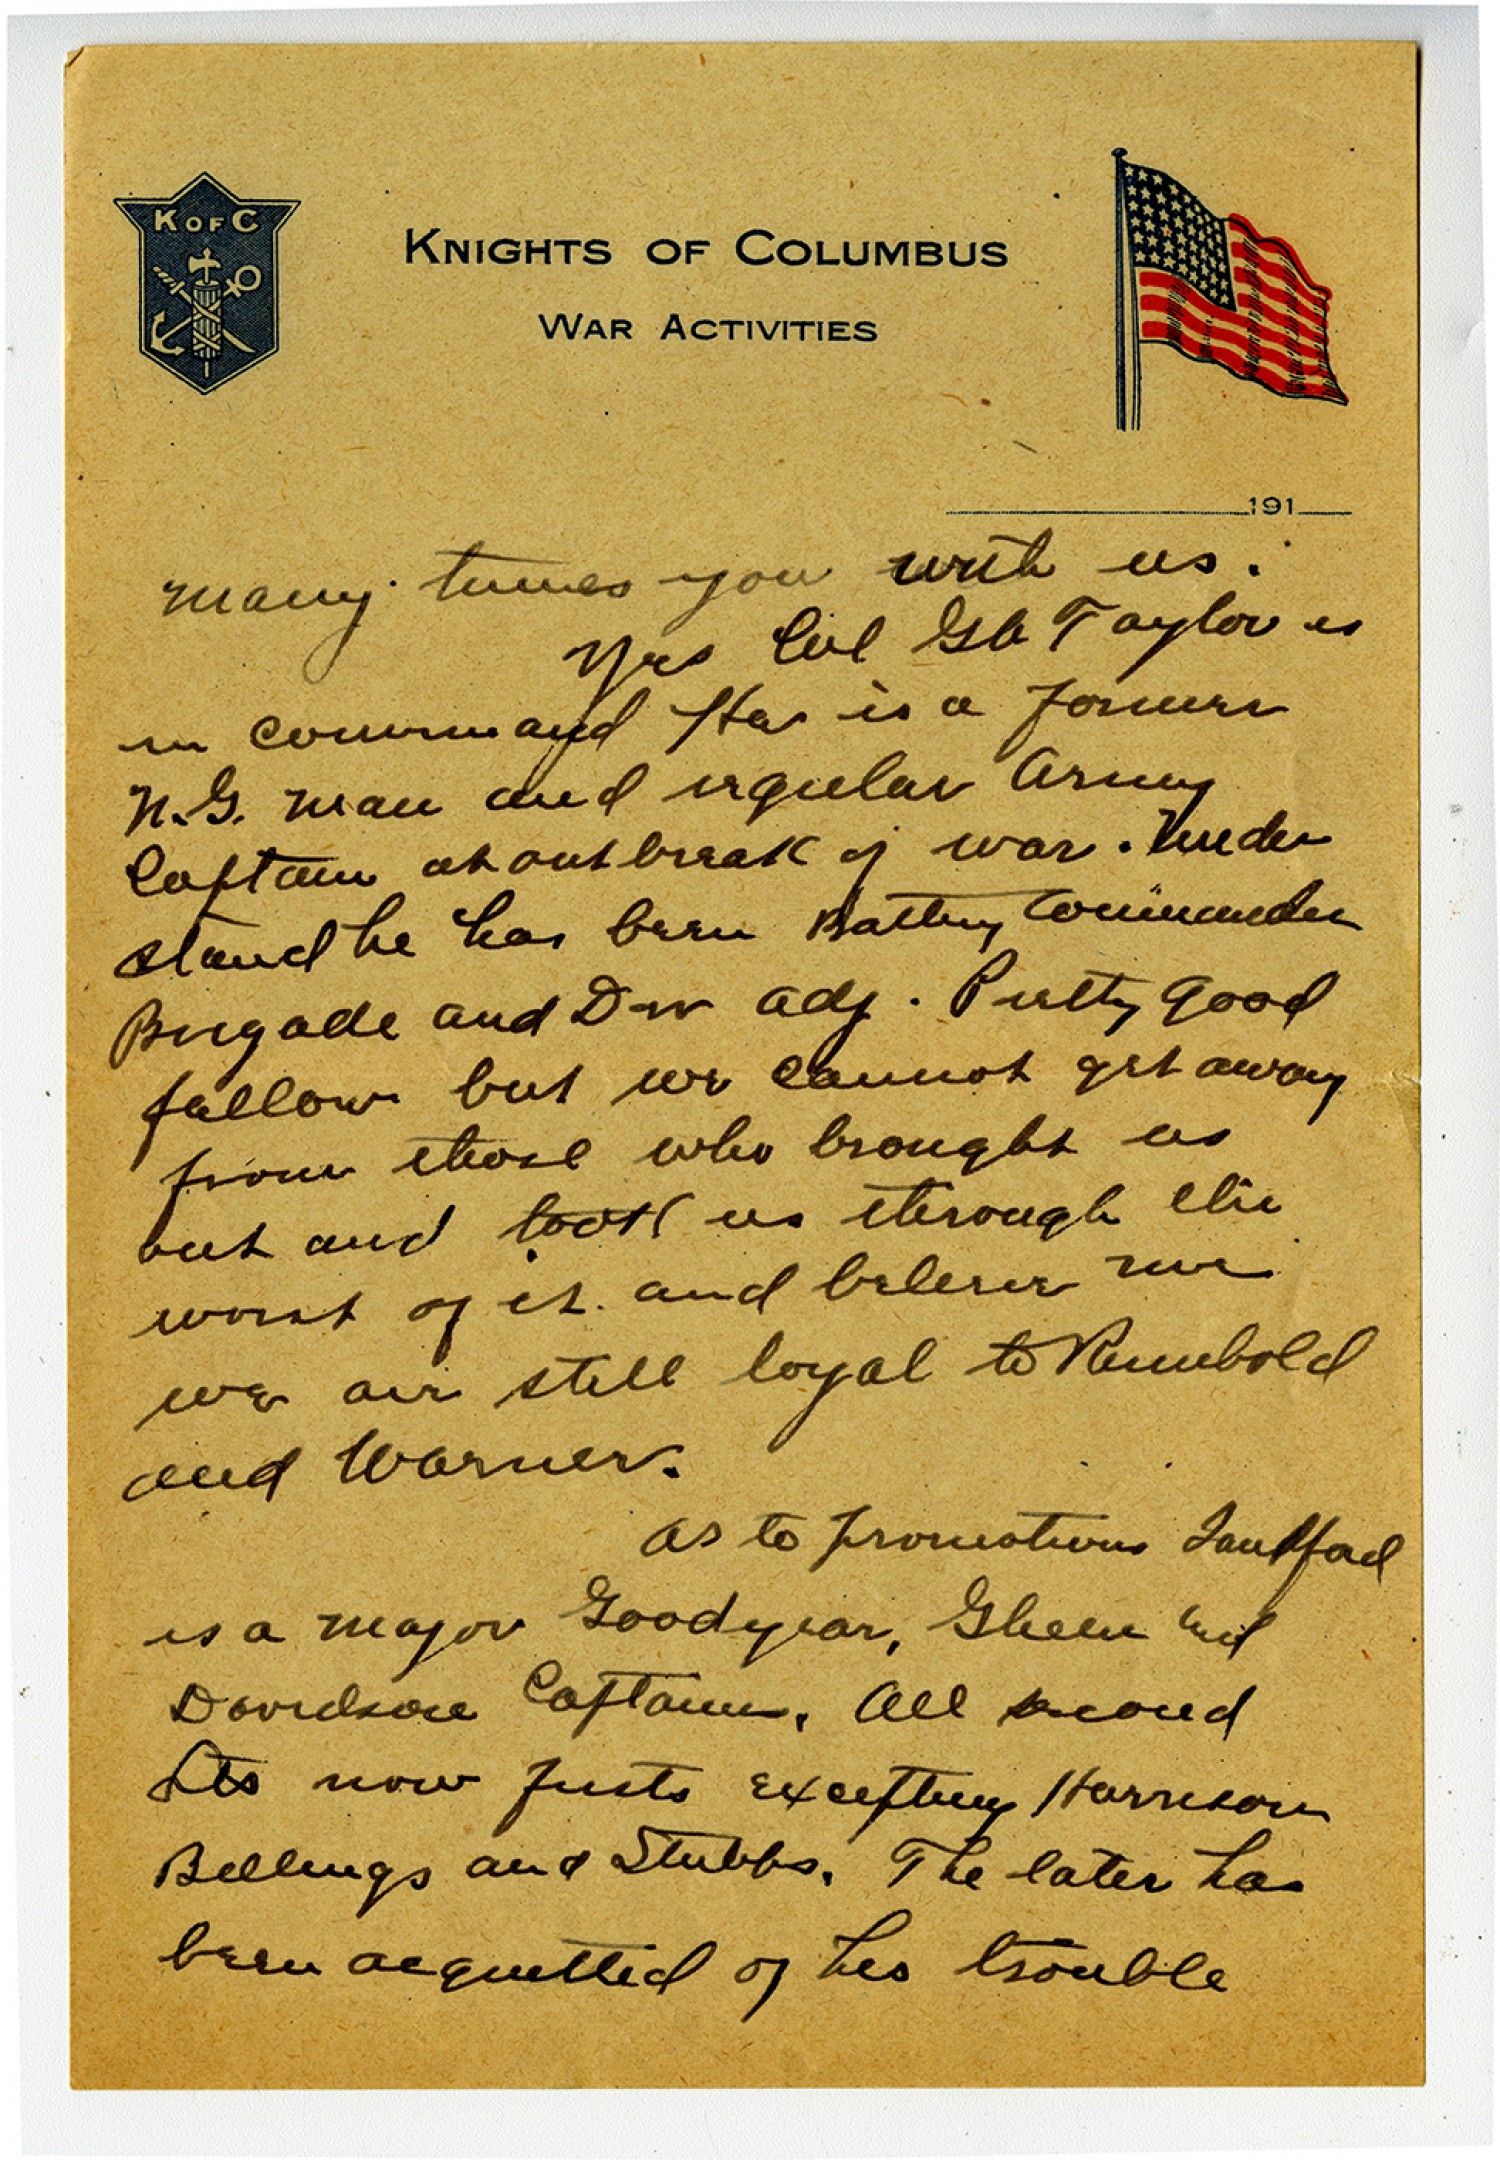 K OF C
KNIGHTS OF COLUMBUS
WAR ACTIVITIES
191
many times you with us.
Yes Col Taylor is
in command He is a former
N.G. man and regular Army
Captain at outbreak of war. Under
stand he has been Battery Commander
Brigade and Div adj. Pretty good
fellow but we cannot get away
from those who brought us
out and took us through the
worst of it. and beleive me
we are still loyal to Rumbold
and Warner.
as to promotions
is a Major Goodyear, Gheen and
Davidson Captains. All second
Lts now firsts excepting Harrison
Billings and Stubbs. The later has
been acquitted of his trouble